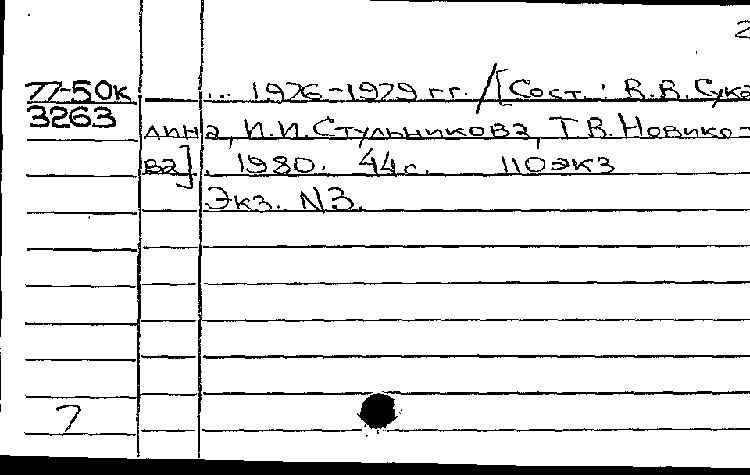 2
77-50к ... 1976-1979 гг. /[Сост.: В.В. Сука-
3263 лина, И.И. Стульникова, Т.В. Новико-
ва]. 1980. 44 с. 110 экз
Экз. N3.
7